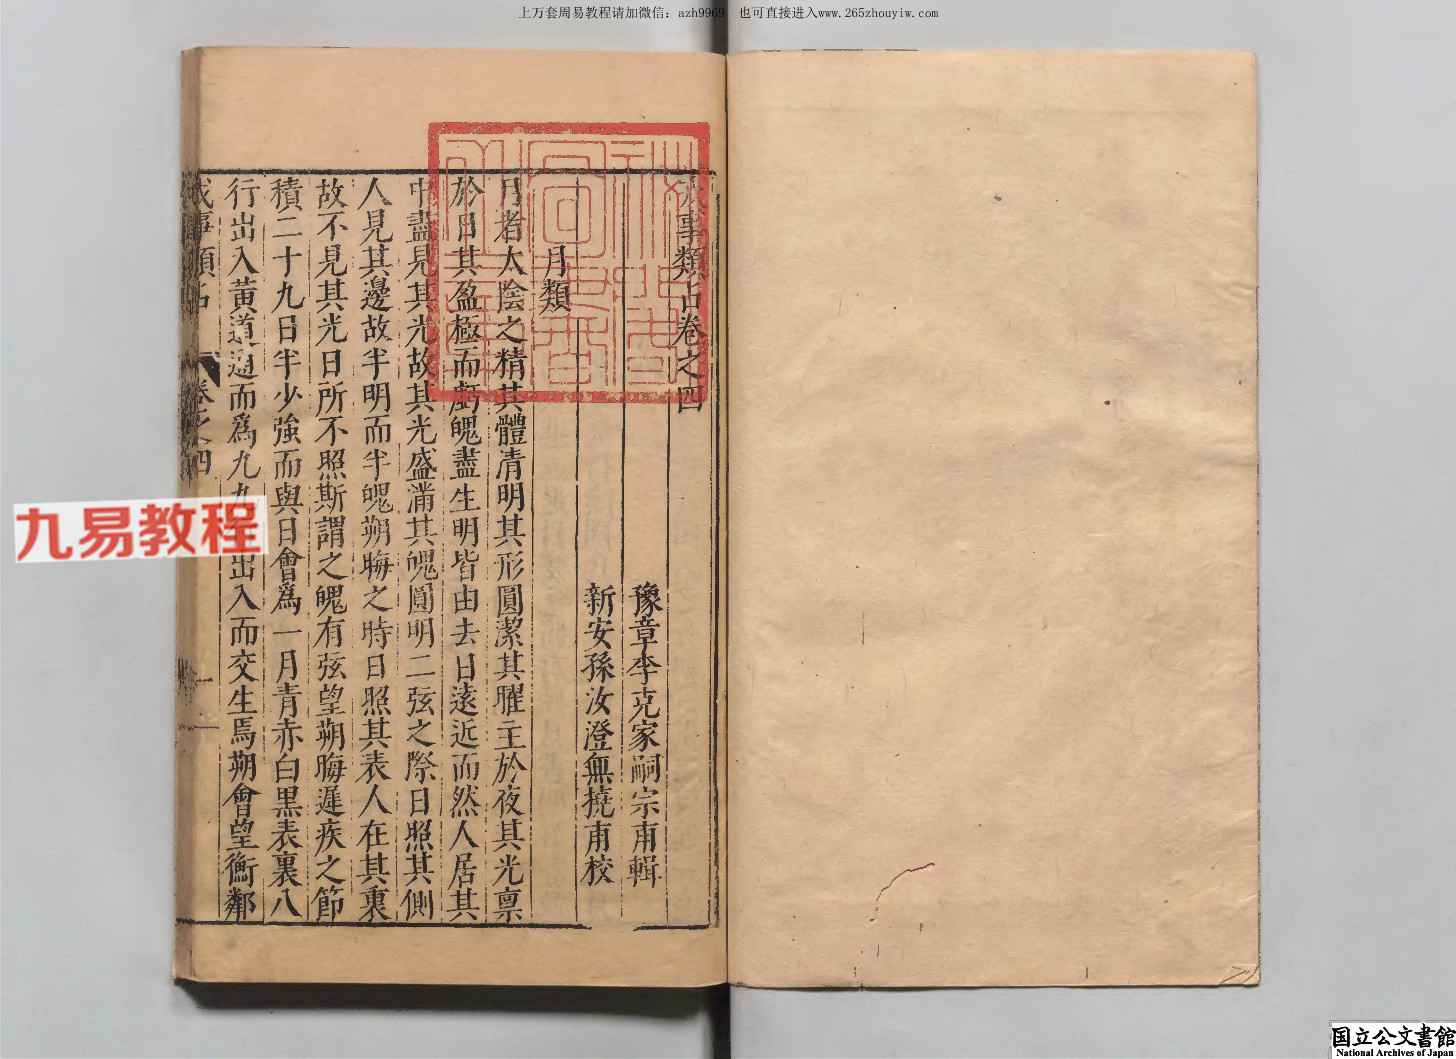 上万套周易教程请加微信：azh9969　也可直接进入www.265zhouyiw.com
戎事類占卷之四
豫章李克家嗣宗甫輯
新安孫汝澄無撓甫校
月類
月者太陰之精其體清明其形圓潔其曜主於夜其光禀
於日其盈極而虧魄盡生明皆由去日遠近而然人居其
中盡見其光故其光盛滿其魄圓明二弦之際日照其側
人見其邊故半明而半魄朔晦之時日照其表人在其裏
故不見其光日所不照斯謂之魄有弦望朔晦遲疾之節
積二十九日半少強而與日會爲一月青赤白黒表裏八
行出入黄道通而爲九九行出入而交生焉朔會望衡鄰
戎事類占
卷之四
一
九易教程
国立公文書館
National Archives of Japan